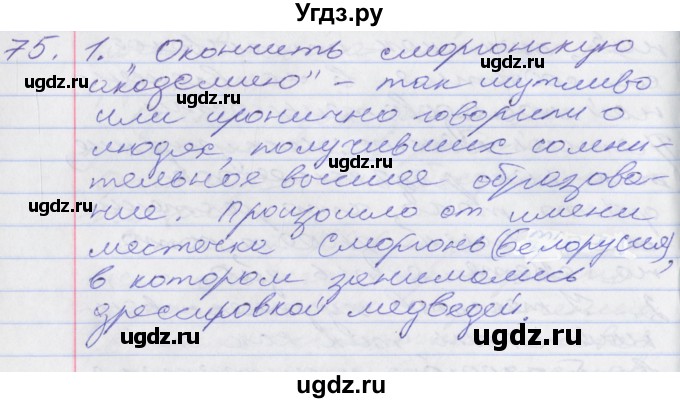 Угдз.ру
75. 1. "Окончить сморгонскую
академию" - так шутливо
или иронично говорили о
людях, получивших сомни-
тельное высшее образова-
ние. Произошло от имени
местечка Сморгонь (Белоруссия),
в котором занимались
дрессировкой медведей.
ugdz.ru
ugdz.ru
ugdz.ru
ugdz.ru
ugdz.ru
ugdz.ru
ugdz.ru
ugdz.ru
ugdz.ru
ugdz.ru